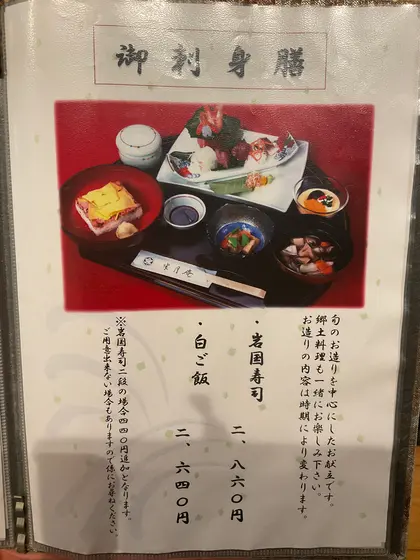 御刺身膳
旬のお造りを中心にしたお献立です。
郷土料理も一緒にお楽しみ下さい。
お造りの内容は時期により変わります。
・岩国寿司 二、八六〇円
・白ご飯 二、六四〇円
※岩国寿司二段の場合四四〇円追加となります。
ご用意出来ない場合もありますので係にお尋ねください。